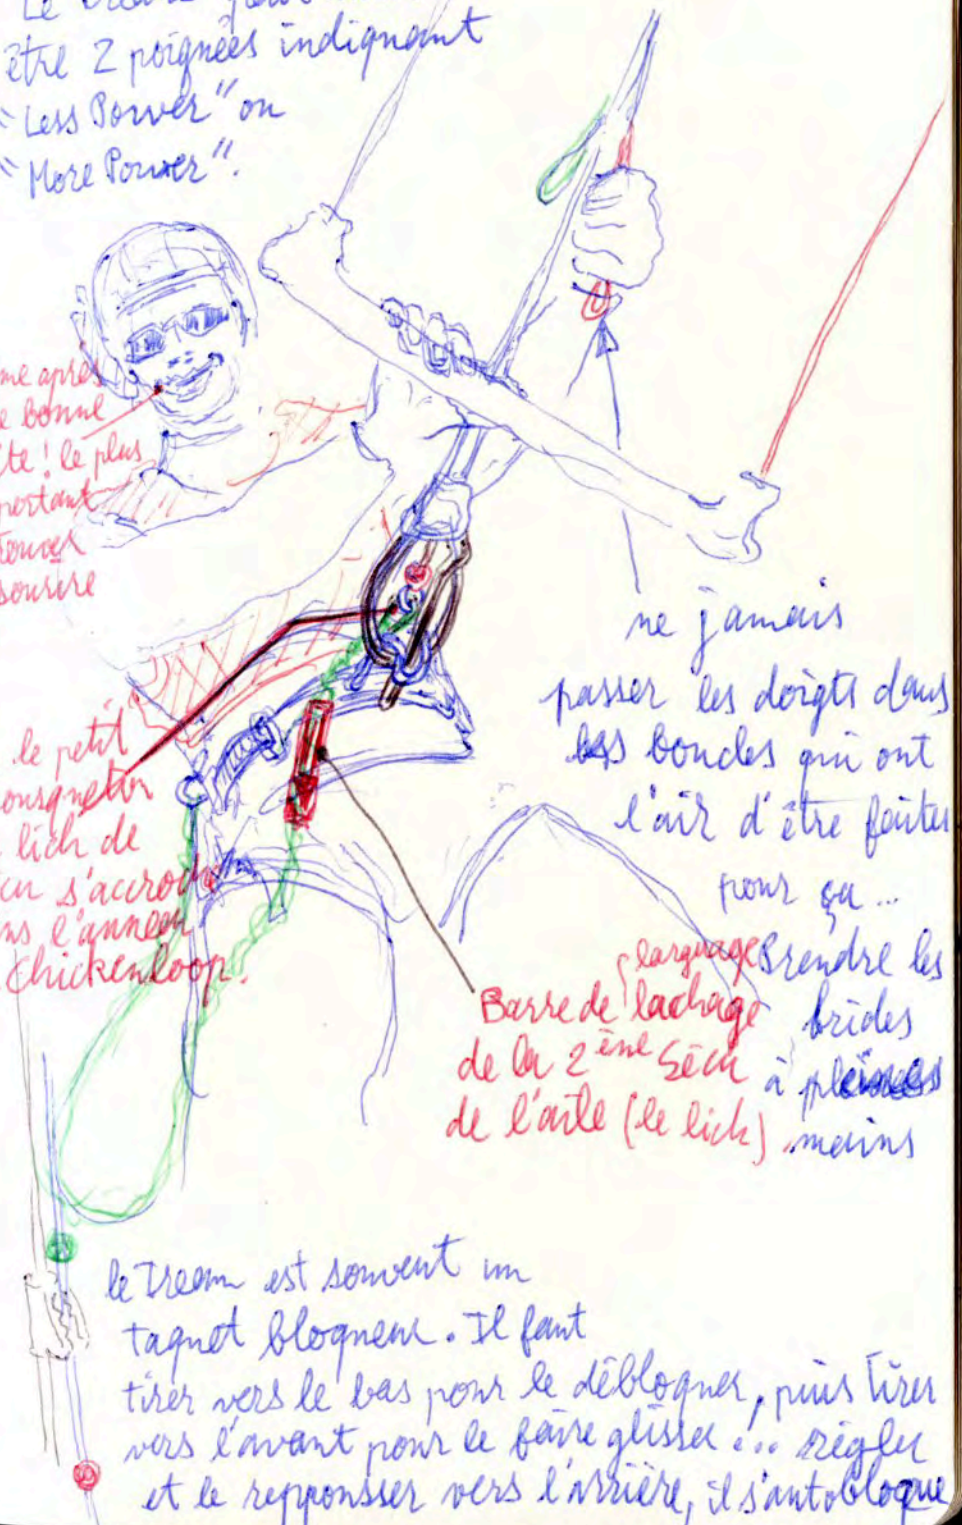 être 2 poignées indiquant
"Less Power" ou
"More Power".
me après
bonne
! le plus
portant
sourire
ne jamais
passer les doigts dans
les boucles qui ont
l'air d'être faites
pour ça...
Prendre les
brides
à pleines
mains
le petit
lich de
s'accroche
l'anneau
Chickenloop.
larguage
Barre de lachage
de la 2ème Sécu
de l'aile (le lich).
le Tream est souvent un
taquet bloqueur. Il faut
tirer vers le bas pour le débloquer, puis tirer
vers l'avant pour le faire glisser... régler
et le reppousser vers l'arrière, il s'autobloque